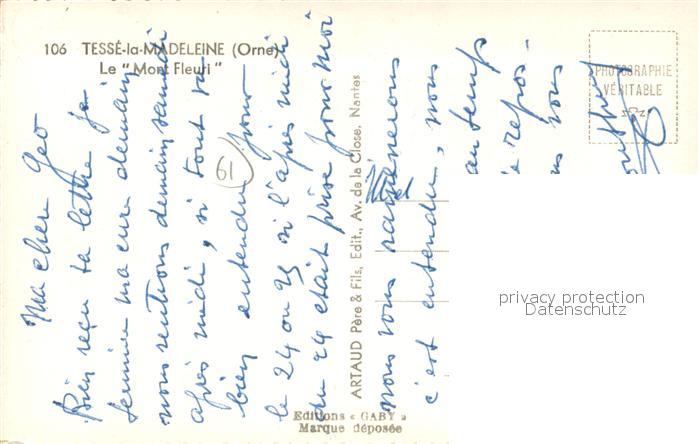 106 TESSÉ-la-MADELEINE (Orne)
Le "Mont Fleuri"
PHOTOGRAPHIE
VÉRITABLE
Ma cher Geo
Bien reçu ta lettre je
termine ma cure demain
nous rentrons demain samedi
après midi, si tout va
bien entendu pour
le 24 ou 25 si l'après midi
du 24 était prise pour moi
nous vous ramènerons
c'est entendu, nous
repos-
vous
61
ARTAUD Père & Fils, Edit., Av. de la Close, Nantes
Editions « GABY »
Marque déposée
privacy protection
Datenschutz